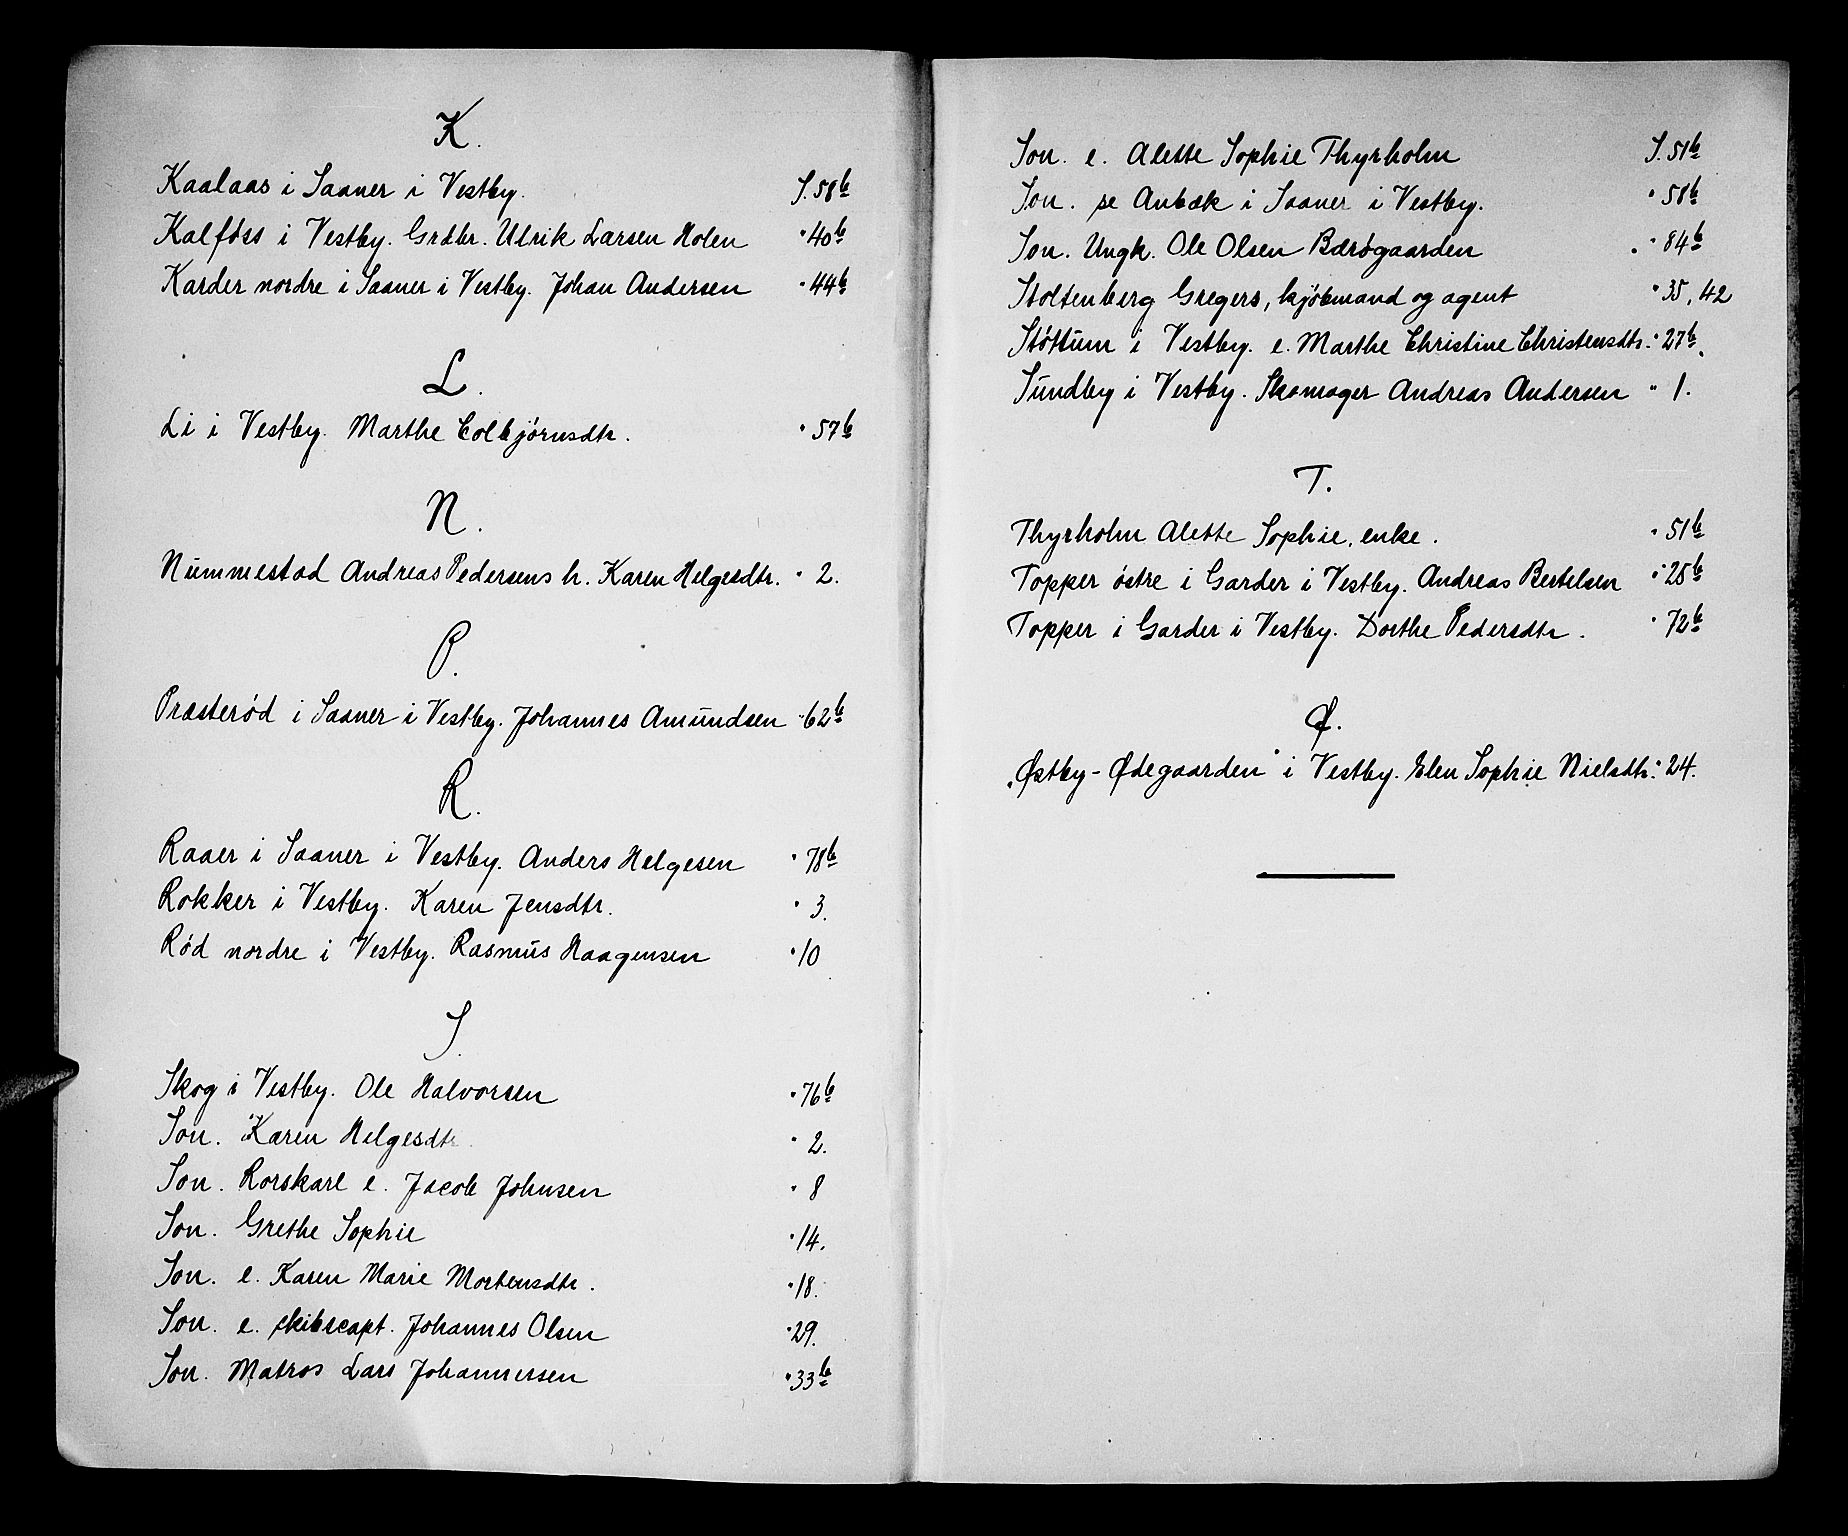 K.
Kaalaas i Saaner i Vestby. S. 58b
Kalföss i Vestby. Grdbr. Ulrik Larsen Holen " 40b
Karder nordre i Saaner i Vestby. Johan Andersen " 44b
L.
Li i Vestby. Marthe Colbjörnsdtr. " 57b
N.
Nummestad Andreas Pedersens h. Karen Helgesdtr. " 2.
P.
Præsteröd i Saaner i Vestby. Johannes Amundsen " 62b
R.
Raaer i Saaner i Vestby. Anders Helgesen " 78b
Rokker i Vestby. Karen Jensdtr. " 3.
Röd nordre i Vestby. Rasmus Haagensen " 10
S.
Skog i Vestby. Ole Halvorsen " 76b
Son. Karen Helgesdtr. " 2.
Son. Rorskarl e. Jacob Johnsen " 8
Son. Grethe Sophie " 14.
Son. e. Karen Marie Mortensdtr. " 18.
Son. e. skibscapt. Johannes Olsen " 29.
Son. Matros Lars Johannersen " 33b
Son. e. Alette Sophie Thyrholm S. 51b
Son. se Anbæk i Saaner i Vestby. " 58b
Son. Ungk. Ole Olsen Bærögaarden " 84b
Stoltenberg Gregers, kjöbmand og agent " 35, 42
Stöttum i Vestby. e. Marthe Christine Christensdtr. " 27b
Sundby i Vestby. Skomager Andreas Andersen " 1.
T.
Thyrholm Alette Sophie, enke. " 51b
Topper östre i Garder i Vestby. Andreas Bertelsen " 25b
Topper i Garder i Vestby. Dorthe Pedersdtr. " 72b
Ø.
"Østby-Ødegaarden" i Vestby. Elen Sophie Nielsdtr. " 24.